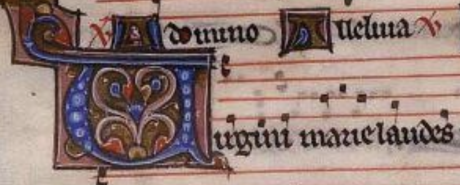 A domino Alleluia
Uirgini marie laudes